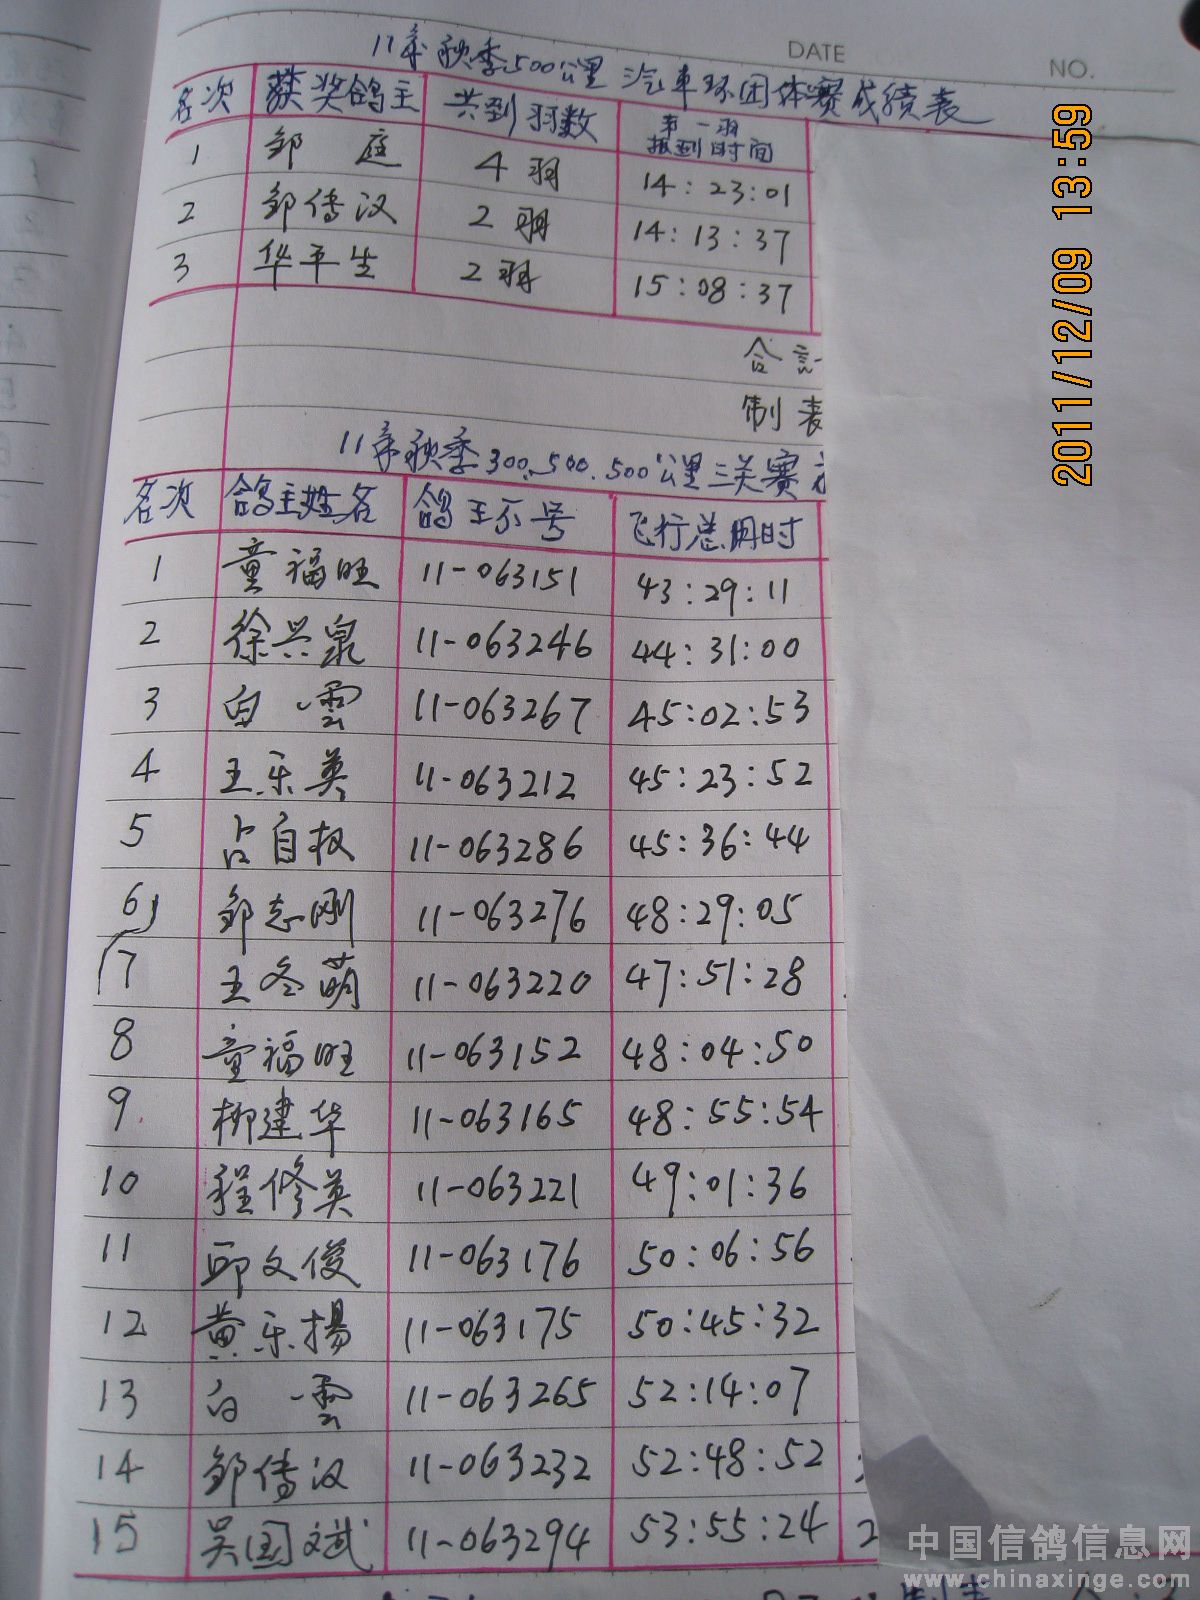 DATE
NO.
11年秋季500公里汽车环团体赛成绩表
名次 获奖鸽主 共到羽数 第一羽报到时间
1 邹庭 4羽 14:23:01
2 邹传汉 2羽 14:13:37
3 华平生 2羽 15:08:37
合计
制表
11年秋季300.500.500公里三关赛
名次 鸽主姓名 鸽王环号 飞行总用时
1 童福旺 11-063151 43:29:11
2 徐兴泉 11-063246 44:31:00
3 白雲 11-063267 45:02:53
4 王乐英 11-063212 45:23:52
5 占自权 11-063286 45:36:44
6 邹志刚 11-063276 48:29:05
7 王冬萌 11-063220 47:51:28
8 童福旺 11-063152 48:04:50
9 柳建华 11-063165 48:55:54
10 程修英 11-063221 49:01:36
11 邱文俊 11-063176 50:06:56
12 黄乐揚 11-063175 50:45:32
13 白雲 11-063265 52:14:07
14 邹传汉 11-063232 52:48:52
15 吴国斌 11-063294 53:55:24 2
制表
2011/12/09 13:59
中国信鸽信息网
www.chinaxinge.com